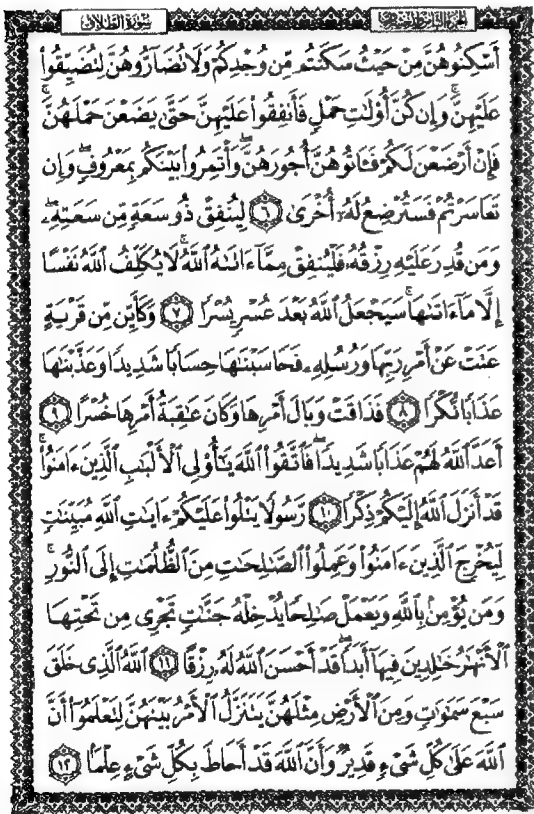 سُورَةُ الطَّلَاقِ الجزء الثامن والعشرون
أَسْكِنُوهُنَّ مِنْ حَيْثُ سَكَنتُم مِّن وُجْدِكُمْ وَلَا تُضَآرُّوهُنَّ لِتُضَيِّقُوا۟
عَلَيْهِنَّ ۚ وَإِن كُنَّ أُو۟لَٰتِ حَمْلٍ فَأَنفِقُوا۟ عَلَيْهِنَّ حَتَّىٰ يَضَعْنَ حَمْلَهُنَّ ۚ
فَإِنْ أَرْضَعْنَ لَكُمْ فَـَٔاتُوهُنَّ أُجُورَهُنَّ ۖ وَأْتَمِرُوا۟ بَيْنَكُم بِمَعْرُوفٍ ۖ وَإِن
تَعَاسَرْتُمْ فَسَتُرْضِعُ لَهُۥٓ أُخْرَىٰ ٦ لِيُنفِقْ ذُو سَعَةٍ مِّن سَعَتِهِۦ ۖ
وَمَن قُدِرَ عَلَيْهِ رِزْقُهُۥ فَلْيُنفِقْ مِمَّآ ءَاتَىٰهُ ٱللَّهُ ۚ لَا يُكَلِّفُ ٱللَّهُ نَفْسًا
إِلَّا مَآ ءَاتَىٰهَا ۚ سَيَجْعَلُ ٱللَّهُ بَعْدَ عُسْرٍ يُسْرًا ٧ وَكَأَيِّن مِّن قَرْيَةٍ
عَتَتْ عَنْ أَمْرِ رَبِّهَا وَرُسُلِهِۦ فَحَاسَبْنَٰهَا حِسَابًا شَدِيدًا وَعَذَّبْنَٰهَا
عَذَابًا نُّكْرًا ٨ فَذَاقَتْ وَبَالَ أَمْرِهَا وَكَانَ عَٰقِبَةُ أَمْرِهَا خُسْرًا ٩
أَعَدَّ ٱللَّهُ لَهُمْ عَذَابًا شَدِيدًا ۖ فَٱتَّقُوا۟ ٱللَّهَ يَٰٓأُو۟لِى ٱلْأَلْبَٰبِ ٱلَّذِينَ ءَامَنُوا۟ ۚ
قَدْ أَنزَلَ ٱللَّهُ إِلَيْكُمْ ذِكْرًا ١٠ رَّسُولًا يَتْلُوا۟ عَلَيْكُمْ ءَايَٰتِ ٱللَّهِ مُبَيِّنَٰتٍ
لِّيُخْرِجَ ٱلَّذِينَ ءَامَنُوا۟ وَعَمِلُوا۟ ٱلصَّٰلِحَٰتِ مِنَ ٱلظُّلُمَٰتِ إِلَى ٱلنُّورِ ۚ
وَمَن يُؤْمِنۢ بِٱللَّهِ وَيَعْمَلْ صَٰلِحًا يُدْخِلْهُ جَنَّٰتٍ تَجْرِى مِن تَحْتِهَا
ٱلْأَنْهَٰرُ خَٰلِدِينَ فِيهَآ أَبَدًا ۖ قَدْ أَحْسَنَ ٱللَّهُ لَهُۥ رِزْقًا ١١ ٱللَّهُ ٱلَّذِى خَلَقَ
سَبْعَ سَمَٰوَٰتٍ وَمِنَ ٱلْأَرْضِ مِثْلَهُنَّ يَتَنَزَّلُ ٱلْأَمْرُ بَيْنَهُنَّ لِتَعْلَمُوٓا۟ أَنَّ
ٱللَّهَ عَلَىٰ كُلِّ شَىْءٍ قَدِيرٌ وَأَنَّ ٱللَّهَ قَدْ أَحَاطَ بِكُلِّ شَىْءٍ عِلْمًۢا ١٢